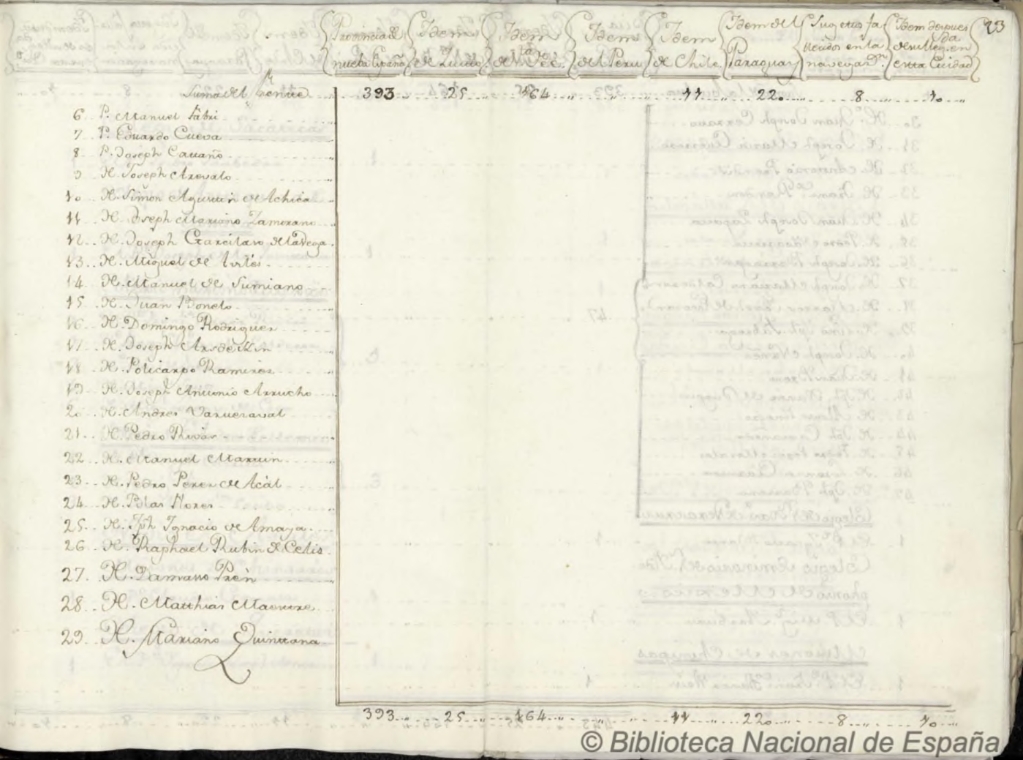 23
Provincia de nueva España
Idem de Quito
Idem de Sta Fee
Idem del Peru
Idem de Chile
Idem del Paraguay
Sugetos falleidos en la navegaon
Idem despues de su lleg.da en esta Ciudad
Suma del frente 393 25 164 11 22 8 10
6 P. Manuel Fabri
7 P. Eduardo Cueva
8 P. Joseph Cassaño
9 H. Joseph Arevalo
10 H. Simon Agustin de Achica
11 H. Joseph Mariano Zamorano
12 H. Joseph Garcilaso de la Vega
13 H. Miguel de
14 H. Manuel de Sumiano
15 H. Juan Boneto
16 H. Domingo Rodriguez
17 H. Joseph
18 H. Policarpo Ramirez
19 H. Joseph Antonio Arrucho
20 H. Andres
21 H. Pedro Rivas
22 H. Manuel Martin
23 H. Pedro Perez de Acàl
24 H. Blas Flores
25 H. Jph Ignacio de Amaya
26 H. Raphael Rubin de Celis
27 H. Damasso Prèn
28 H. Matthias Maestre
29 H. Mariano Quintana
393 25 164 11 22 8 10
© Biblioteca Nacional de España